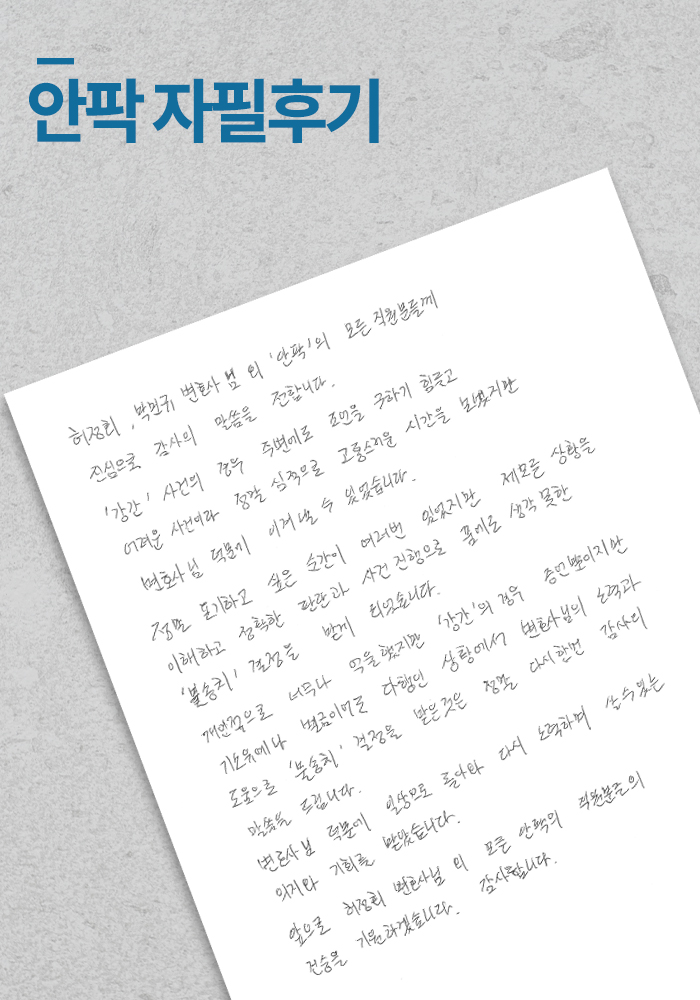 안팍 자필후기
허정회, 박민규 변호사님 외 '안팍'의 모든 직원분들께
진심으로 감사의 말씀을 전합니다.
'강간' 사건의 경우 주변에도 조언을 구하기 힘들고
어려운 사건이라 정말 심적으로 고통스러운 시간을 보냈지만
변호사님 덕분에 이겨낼 수 있었습니다.
정말 포기하고 싶은 순간이 여러번 있었지만 제 모든 상황을
이해하고 정확한 판단과 사건 진행으로 꿈에도 생각 못한
'불송치' 결정을 받게 되었습니다.
개인적으로 너무나 억울했지만 '강간'의 경우 증언뿐이지만
기소유예나 벌금이어도 다행인 상황에서 변호사님의 노력과
도움으로 '불송치' 결정을 받은 것은 정말 다시한번 감사의
말씀을 드립니다.
변호사님 덕분에 일상으로 돌아와 다시 노력하며 살 수 있는
의지와 기회를 받았습니다.
앞으로 허정회 변호사님 외 모든 안팍의 직원분들의
건승을 기원하겠습니다. 감사합니다.